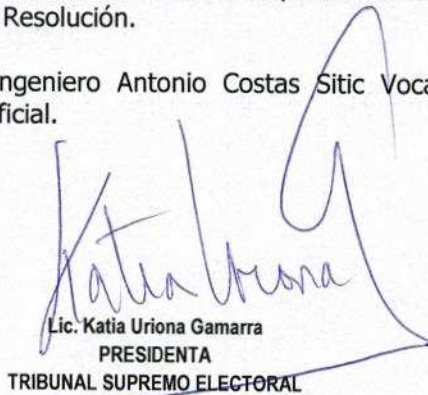 Resolución.
ngeniero Antonio Costas Sitic Voca
ficial.
Katia Uriona
Lic. Katia Uriona Gamarra
PRESIDENTA
TRIBUNAL SUPREMO ELECTORAL